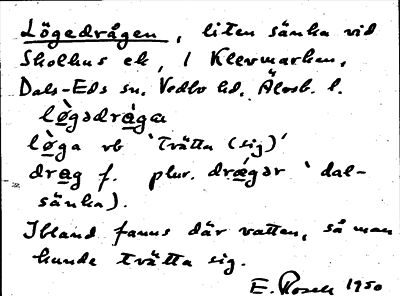 Lögedrågen, liten sänka vid
Skolhus ek, i Klevmarken,
Dals-Eds sn. Vedbo hd. Älvsb. l.
lø̀gədrága
lø̀ga vb 'tvätta (sig)'
drag f. plur. drǽgər 'dal-
sänka).
Ibland fanns där vatten, så man
kunde tvätta sig.
E. Rosell 1950